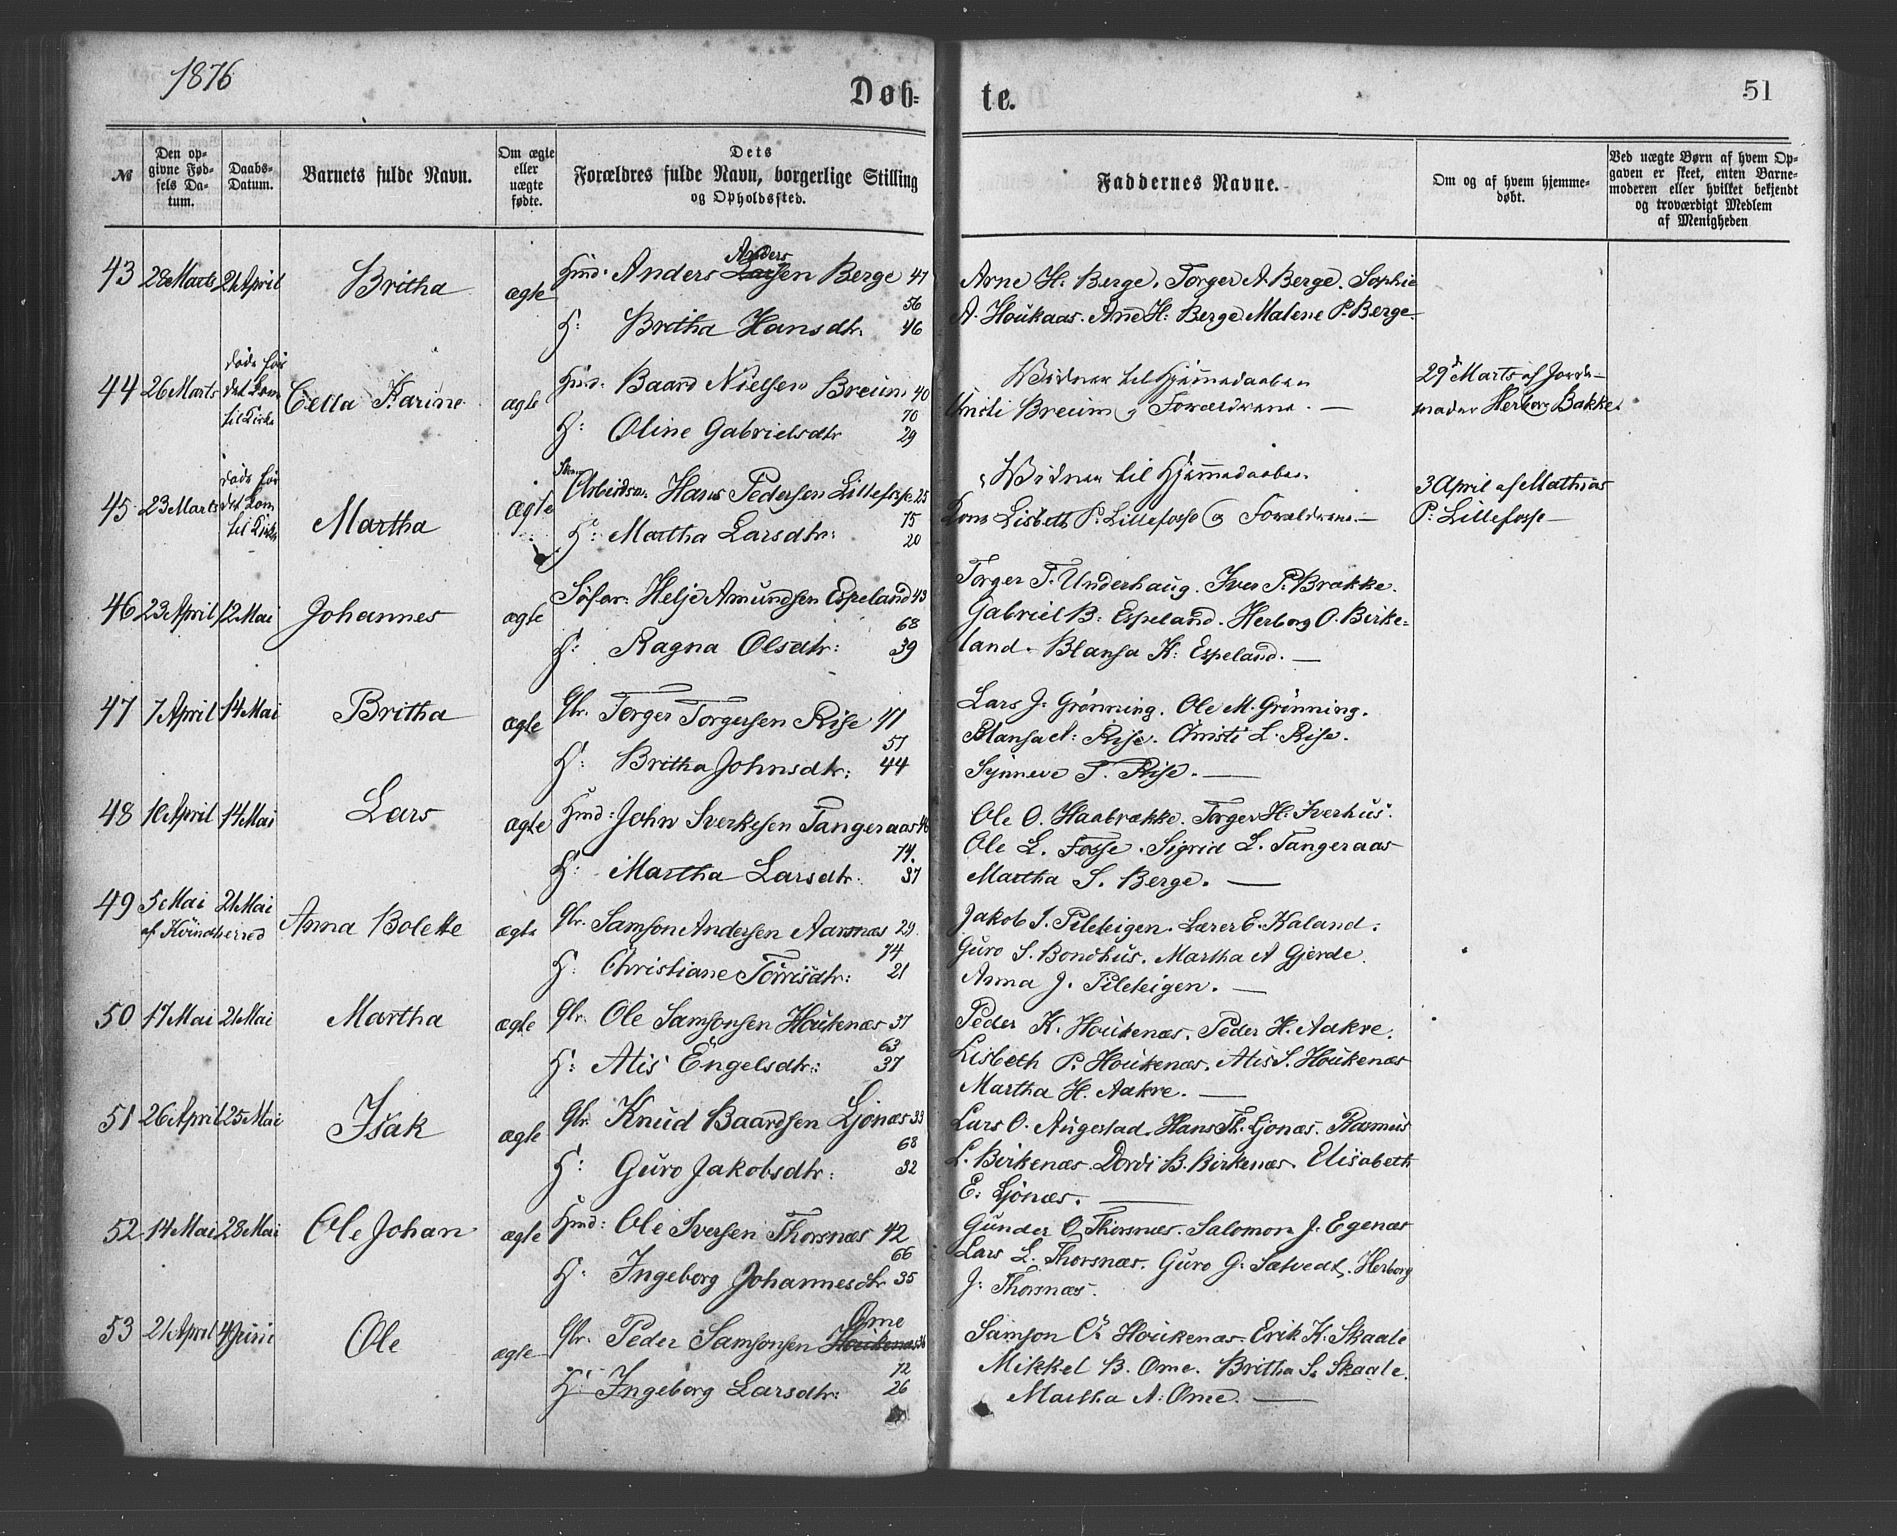 1876
Døb-
te.
51
№
Den op-
givne Fød-
sels Da-
tum.
Daabs-
Datum.
Barnets fulde Navn.
Om ægte
eller
uægte
fødte.
Dets
Forældres fulde Navn, borgerlige Stilling
og Opholdssted.
Faddernes Navne.
Om og af hvem hjemme-
døbt.
Ved uægte Børn af hvem Op-
gaven er skeet, enten Barne-
moderen eller hvilket bekjendt
og troværdigt Medlem
af Menigheden
Anders
43 28 Marts 21 April Britha ægte Huusd: Anders Larsen Berge 47
56
H: Britha Hansdtr. 46
Arne H. Berge. Torger A. Berge. Sophie
A. Houkaas. Anne H: Berge. Malene P. Berge.
44 26 Marts døde før
det kom
til Kirke
Cella Karine ægte Huusd: Baard Nielsen Breium 40
70
H: Oline Gabrielsdtr 29
Vidner til Hjemmedaaben
Kristi Breium og Forældrene. —
29d Marts af Jorde-
moder Herborg Bakke.
45 23 Marts døde før
det kom
til Kirke
Martha Ægte Arbeidsm: Hans Pedersen Lillefosse 25
75
H: Martha Larsdtr: 20
Vidner til Hjemmedaaben
Kone Lisbeth P. Lillefosse og Forældrene. —
3 April af Mathias
P: Lillefosse —
46 23 April 12 Mai Johannes ægte Selvei: Helje Amundsen Espeland 43
68
H: Ragna Olsdtr: 39
Torger T. Underhaug. Iver P. Brække.
Gabriel B: Espeland. Herborg O. Birke-
land. Blansa K: Espeland. —
47 7 April 14 Mai Britha ægte Gbr. Torger Torgersen Rise 41
51
H: Britha Johnsdtr: 44
Lars J. Grønning. Ole M. Grønning.
Blansa A: Rise. Christi L. Rise.
Synneve T. Rise. —
48 10 April 14 Mai Lars ægte Huusd: John Sverkesen Tangeraas 46
74.
H: Martha Larsdtr. 37
Ole O. Haabrække. Torger H. Iverhus.
Ole L. Fosse. Sigrid L. Tangeraas
Martha S. Berge. —
49 5 Mai 21 Mai
af Kvindherred
Anna Bolette ægte Gbr. Samson Andersen Aarsnæs 29
74
H: Christiane Tørrisdtr: 21
Jakob J. Pileteigen. Lærer E. Kaland.
Guro S. Bondhus. Martha A Gjerde.
Anna J. Pileteigen. —
50 17 Mai 21 Mai Martha ægte Gbr. Ole Samsonsen Houkenæs 37
63
H: Atis Engelsdtr: 37
Peder K. Houkenæs. Peder H. Aakre.
Lisbeth P. Houkenæs. Atis S. Houkenæs
Martha H. Aakre. —
51 26 April 25 Mai Isak ægte Gbr. Knud Baardsen Ljonæs 33
68
H: Guro Jakobsdtr: 32
Lars O. Augestad. Hans Th. Ljonæs. Rasmus
L. Birkenæs. Dordi B. Birkenæs. Elisabeth
E. Ljonæs. —
52 14 Mai 28 Mai Ole Johan ægte Huusd: Ole Iversen Thorsnæs 42
66
H: Ingeborg Johannesdtr 35
Gunder O. Thorsnæs. Salomon J. Egenæs
Lars L. Thorsnæs. Guro G. Sætvedt. Herborg
J. Thorsnæs.
Ome
53 21 April 4 Juni Ole ægte Gbr. Peder Samsonsen Houkenæs
72
H: Ingeborg Larsdtr: 26
Samson C. Houkenæs. Erik K. Skaale
Mikkel B. Ome. Britha S. Skaale.
Martha A: Ome. —